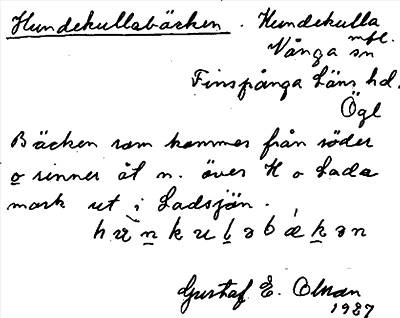 Hundekullabäcken. Hundekulla
mfl.
Vånga sn
Finspånga läns hd.
Ögl
Bäcken som kommer från söder
o rinner åt n. över H o Lada
mark ut i Ladsjön.
Gustaf E. Olsson
1927